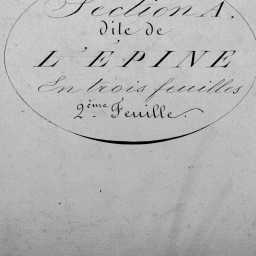 Section A.
dite de
L'ÉPINE
En trois feuilles
2ème Feuille.